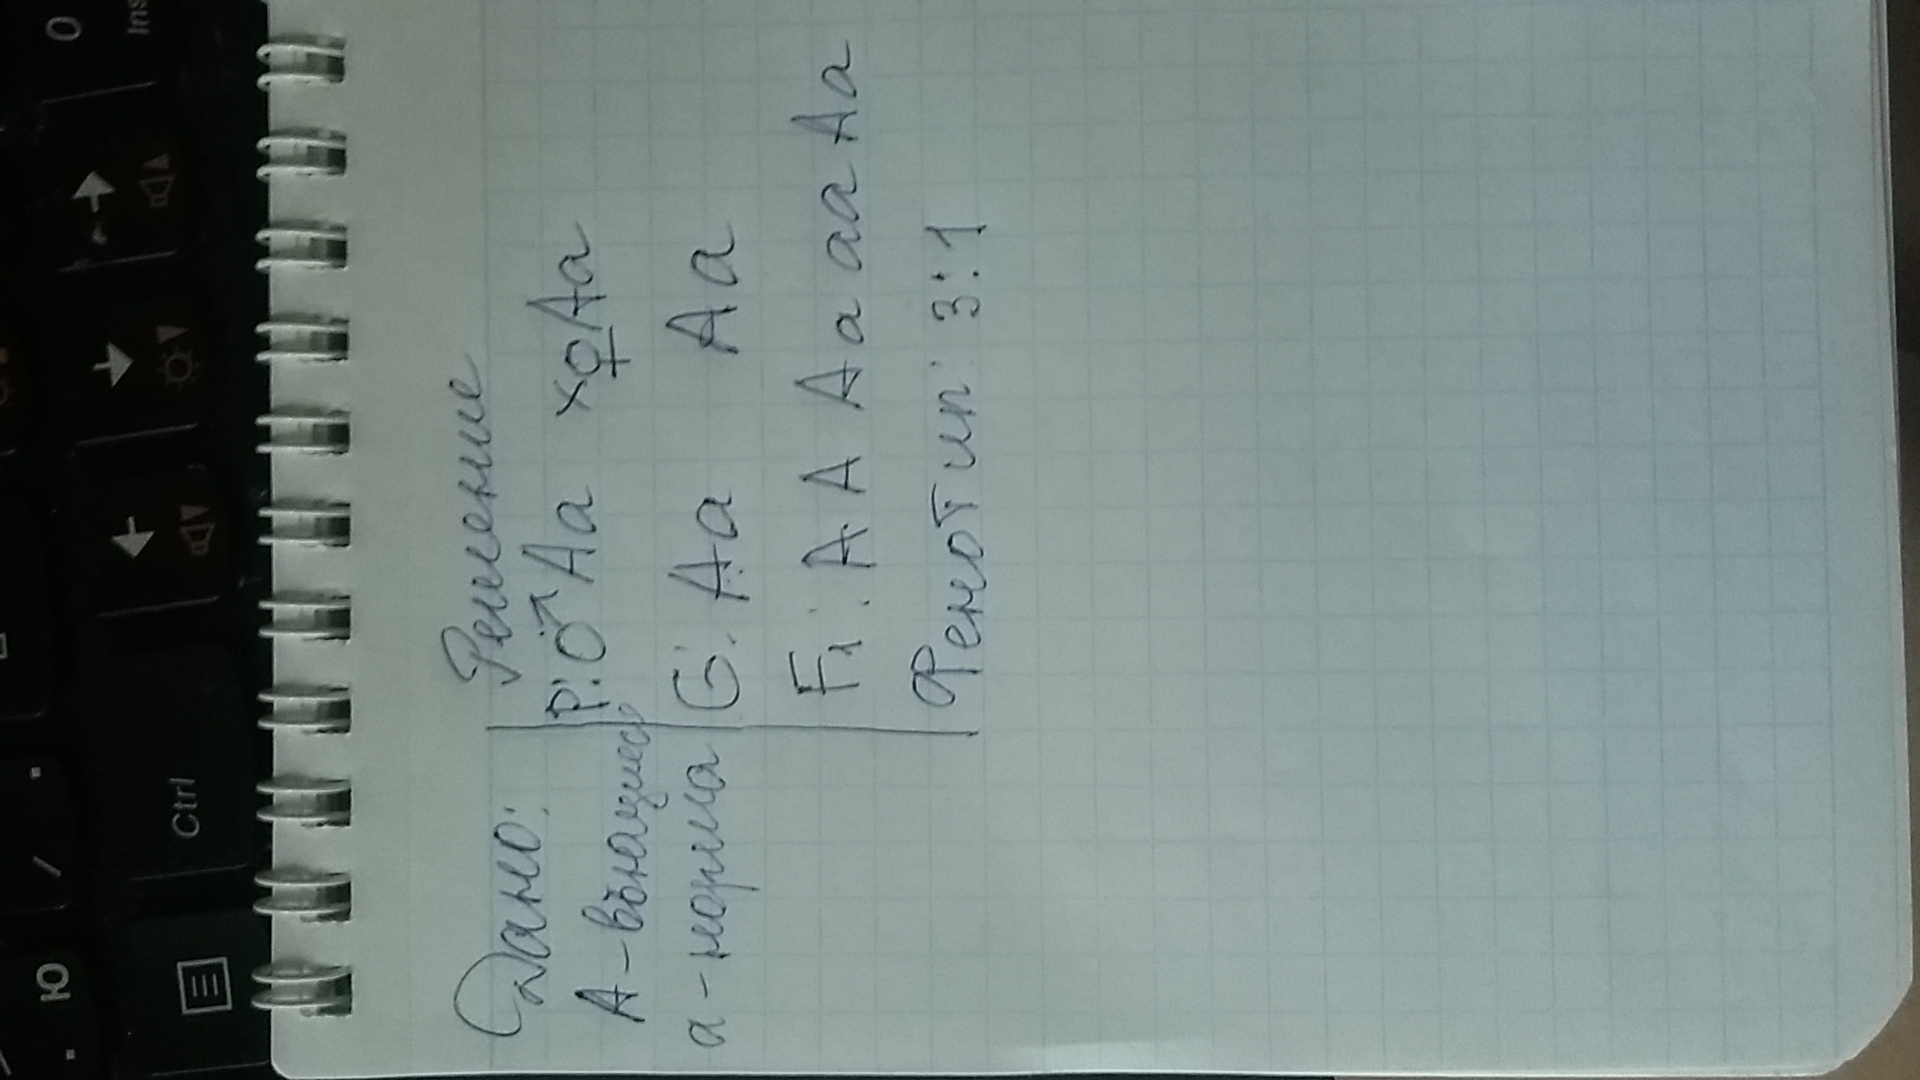 Дано:
А - вьнащиеся
а - норма
Решение
P: ♂ Аа х ♀ Аа
G: Аа Аа
F1: АА Аа аа Аа
Фенотип: 3:1
Ctrl
Ю
0
Ins